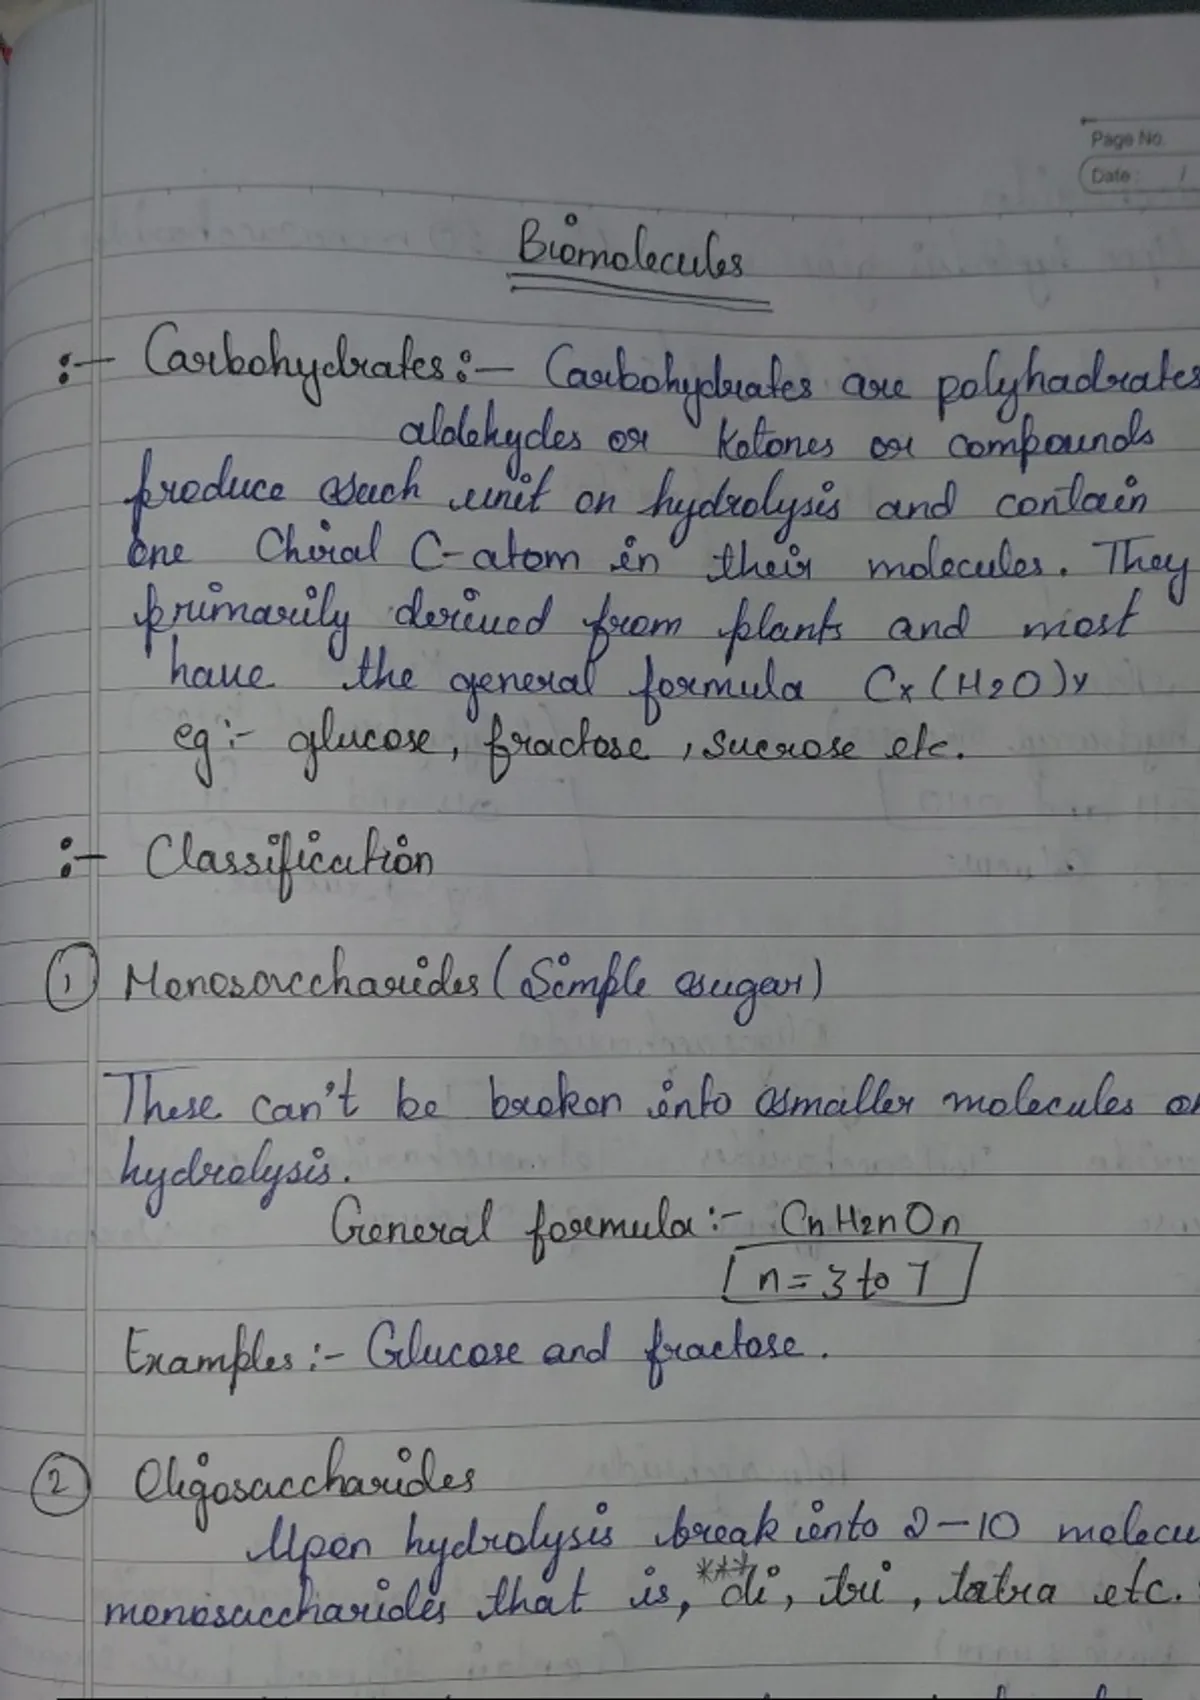 Page No.
Date: /
Biomolecules
:- Carbohydrates :- Carbohydrates are polyhadrates
aldehydes or Ketones or compounds
produce such unit on hydrolysis and contain
one Chiral C-atom in their molecules. They
primarily derived from plants and most
have the general formula Cx(H2O)y
eg:- glucose, fractose, sucrose etc.
:- Classification
① Monosaccharides (Simple sugar)
These can't be broken into smaller molecules on
hydrolysis.
General formula:- CnH2nOn
[n=3 to 7]
Examples:- Glucose and fractose.
② Oligosaccharides
Upon hydrolysis break into 2-10 molecu
monosaccharides that is, ***di, tri, tatra etc.